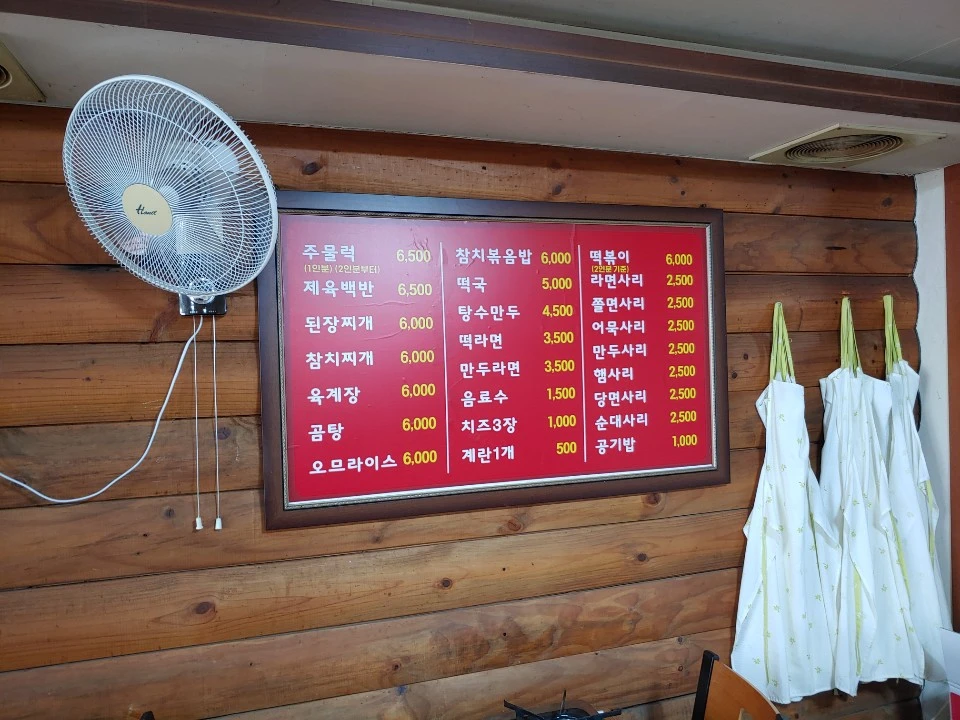 주물럭 6,500
(1인분) (2인분부터)
제육백반 6,500
된장찌개 6,000
참치찌개 6,000
육계장 6,000
곰탕 6,000
오므라이스 6,000
참치볶음밥 6,000
떡국 5,000
탕수만두 4,500
떡라면 3,500
만두라면 3,500
음료수 1,500
치즈3장 1,000
계란1개 500
떡볶이 6,000
(2인분 기준)
라면사리 2,500
쫄면사리 2,500
어묵사리 2,500
만두사리 2,500
햄사리 2,500
당면사리 2,500
순대사리 2,500
공기밥 1,000